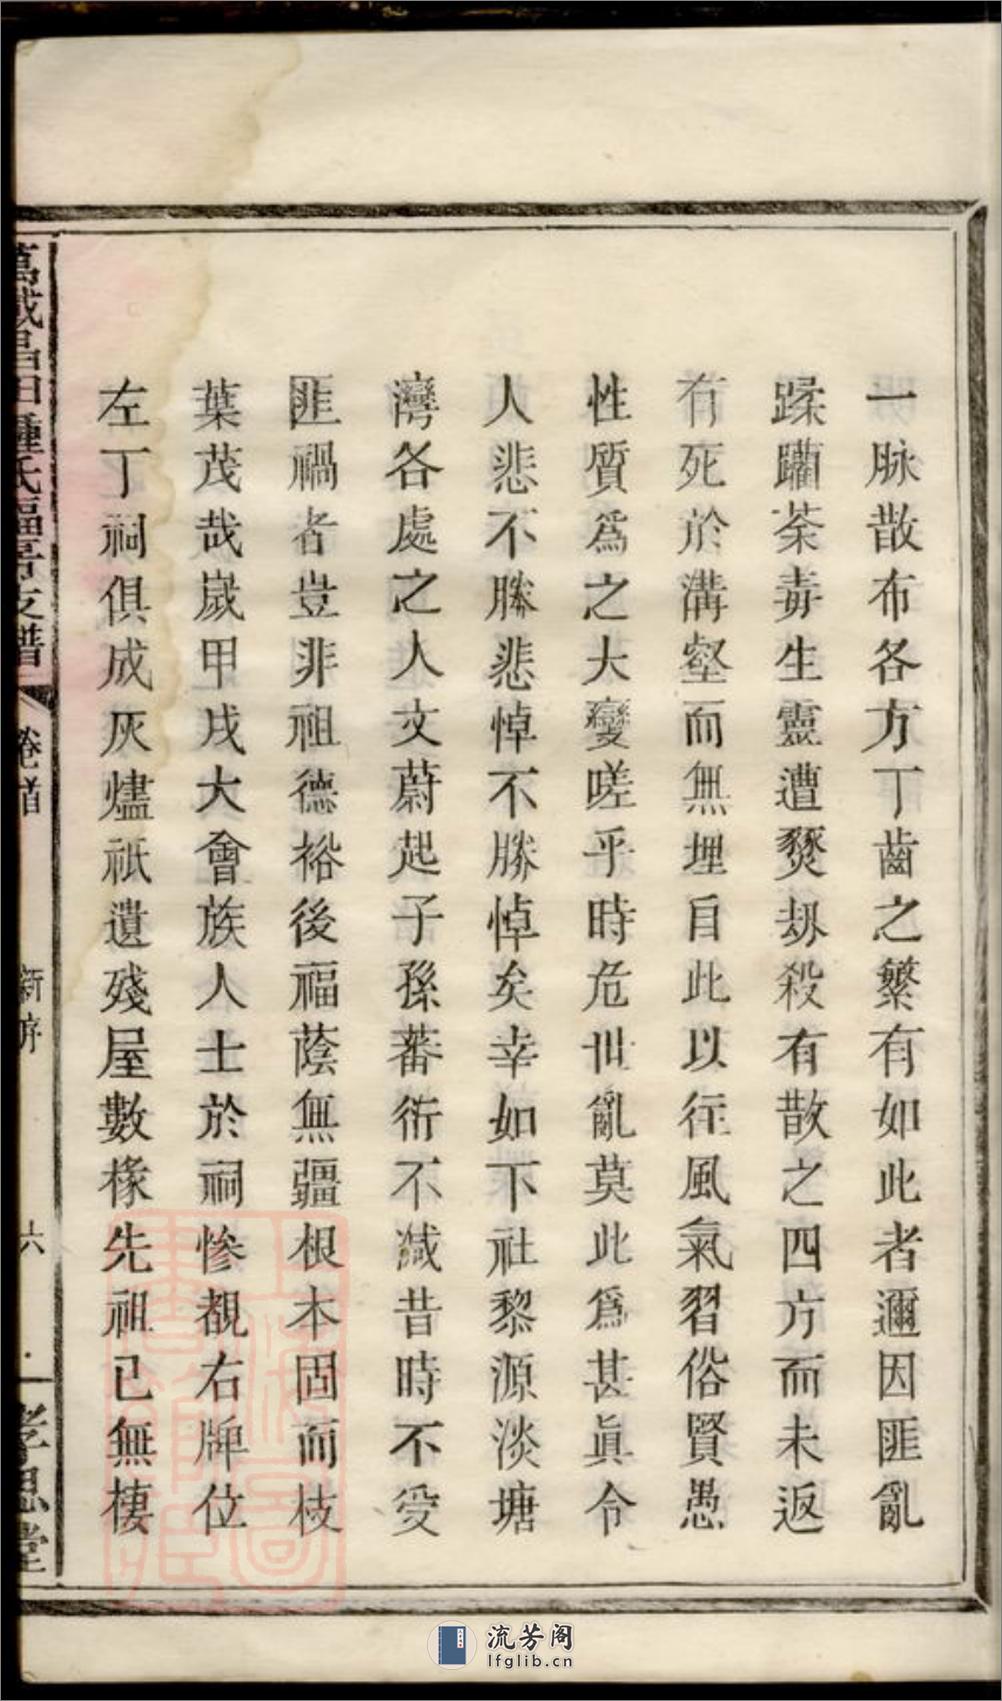 一脉散布各方丁齒之繁有如此者邇因匪亂
蹂躪荼毒生靈遭燹刼殺有散之四方而未返
有死於溝壑而無埋自此以往風氣習俗賢愚
性質爲之大變嗟乎時危世亂莫此爲甚眞令
人悲不勝悲悼不勝悼矣幸如下社黎源淡塘
灣各處之人文蔚起子孫蕃衍不減昔時不受
匪禍者豈非祖德裕後福蔭無疆根本固而枝
葉茂哉嵗甲戌大會族人士於祠慘覩右牌位
左丁祠俱成灰燼祇遺殘屋數椽先祖已無棲
萬載昌田鍾氏福房支譜
卷首
新序
六
孝思堂
流芳阁
lfglib.cn